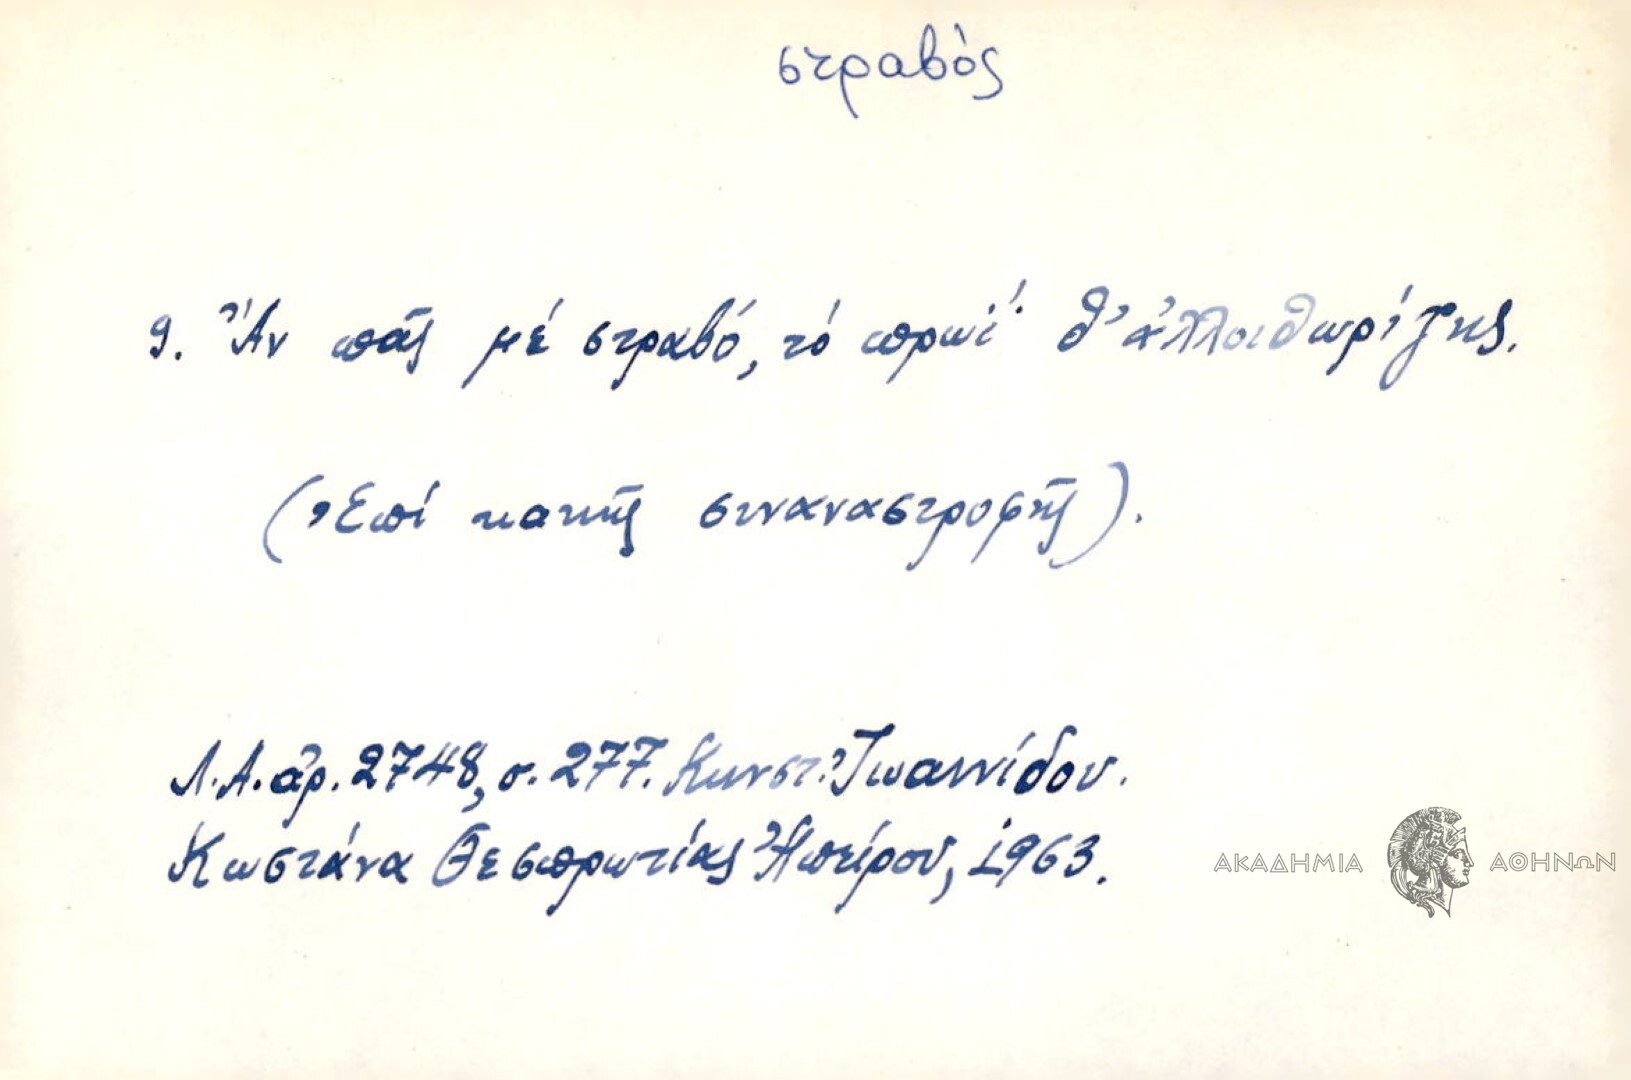 στραβός
9. Ἄν πᾶς μέ στραβό, τό πρωΐ θ' ἀλλοιθωρίζης.
(Ἐπί κακῆς συναναστροφῆς).
Λ.Α. ἀρ. 2748, σ. 277. Κωνστ. Ἰωαννίδου.
Κωστάνα Θεσπρωτίας Ἠπείρου, 1963.
ΑΚΑΔΗΜΙΑ ΑΘΗΝΩΝ